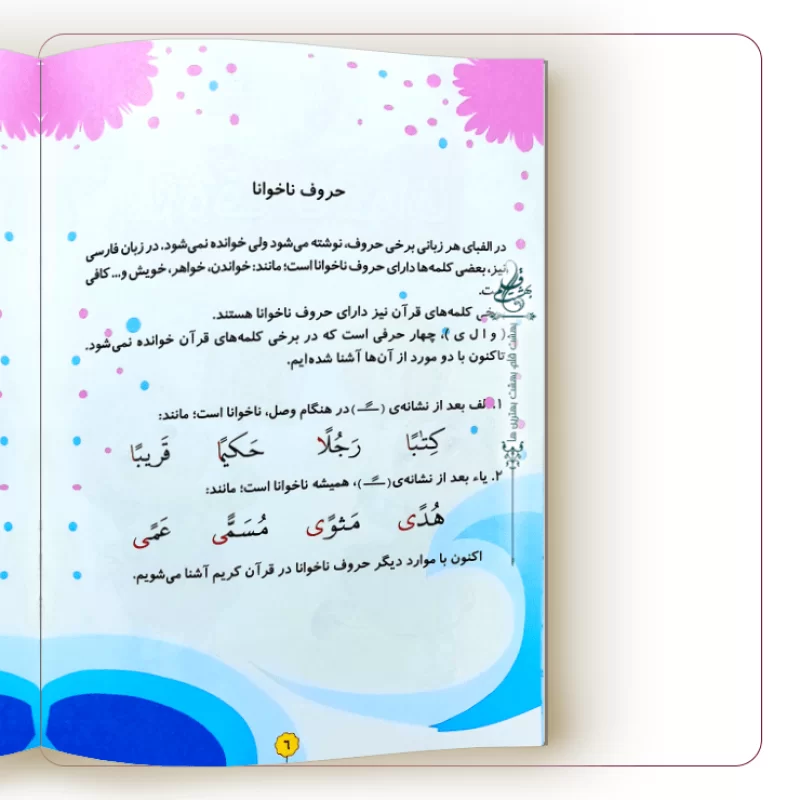 حروف ناخوانا
در الفبای هر زبانی برخی حروف، نوشته می‌شود ولی خوانده نمی‌شود. در زبان فارسی
نیز، بعضی کلمه‌ها دارای حروف ناخوانا است؛ مانند: خواندن، خواهر، خویش و... کافی
کلمه‌های قرآن نیز دارای حروف ناخوانا هستند.
( و ا ل ی )، چهار حرفی است که در برخی کلمه‌های قرآن خوانده نمی‌شود.
تاکنون با دو مورد از آن‌ها آشنا شده‌ایم.
۱. الف بعد از نشانه‌ی (ـًـ) در هنگام وصل، ناخوانا است؛ مانند:
كِتٰبًا رَجُلًا حَكيمًا قَريبًا
۲. یاء بعد از نشانه‌ی (ـًـ)، همیشه ناخوانا است؛ مانند:
هُدًی مَثوًی مُسَمًّی عَمًی
اکنون با موارد دیگر حروف ناخوانا در قرآن کریم آشنا می‌شویم.
۶
بهشت قلم